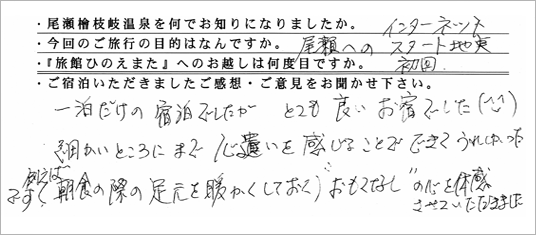 ・尾瀬檜枝岐温泉を何でお知りになりましたか。 インターネット
・今回のご旅行の目的はなんですか。 尾瀬への スタート地点
・『旅館ひのえまた』へのお越しは何度目ですか。 初回
・ご宿泊いただきましたご感想・ご意見をお聞かせ下さい。
一泊だけの宿泊でしたが とても良いお宿でした(^^)
細かいところにまで 心遣いを感じることができてうれしかった
です 例えば 朝食の際の足元を暖かくしておく) "おもてなし"の心を体感
させていただきました